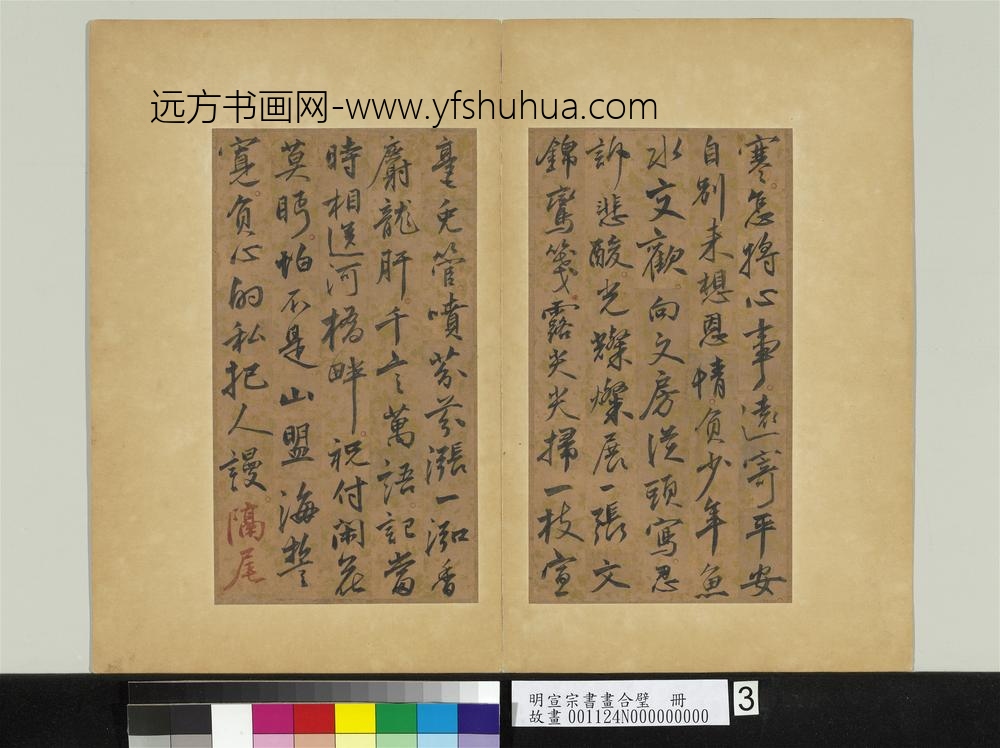 远方书画网-www.yfshuhua.com
寒怎將心事遠寄平安
自別来想恩情負少年魚
水文歡向文房從頭寫忍
訴悲酸光燦燦展一張文
錦鸞箋露尖尖掃一枝宣
毫兎管噴芬芬漲一泓香
麝龍肝千言萬語記當
時相送河橋畔祝付閑花
莫眄怕不是山盟海誓
寬負心的私把人謾
隔尾
明宣宗書畫合璧 冊
故畫001124N000000000
3